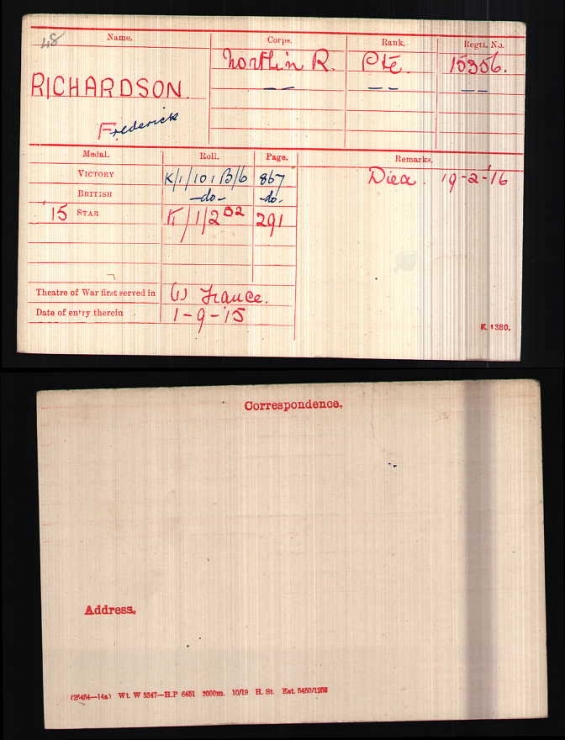 48 Name. Corps. Rank. Regtl. No.
RICHARDSON North'n R. Pte. 15356.
Frederick
Medal. Roll. Page. Remarks.
VICTORY K/1/101 B/6 867 Died. 19-2-16
BRITISH -do- -do-
'15 STAR K/1/2 291
Theatre of War first served in (1) France.
Date of entry therein 1-9-'15
K. 1380.
Correspondence.
Address.
Wt. W 5347—H.P 6451 2000m. 10/19 H. St.